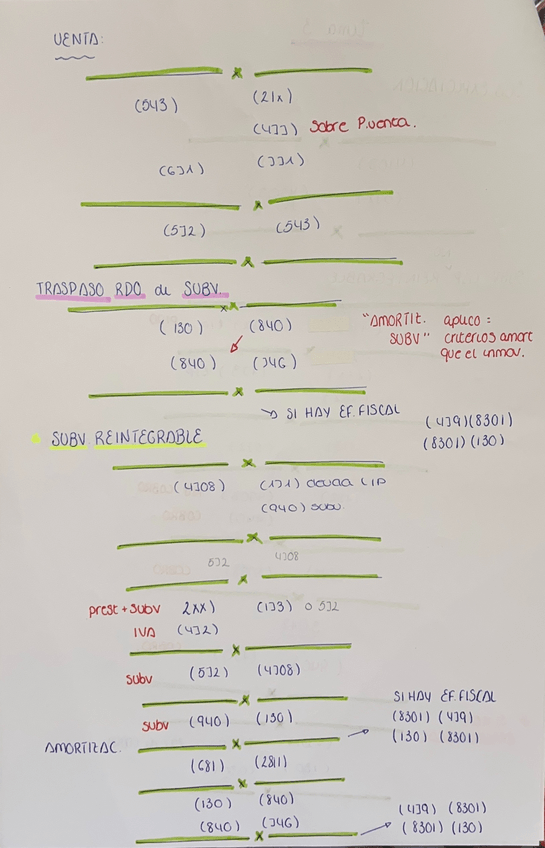 VENTA:
(543) (21x)
(477) Sobre P.venta.
(671) (771)
(572) (543)
TRASPASO RDO de SUBV.
(130) (840)
(840) (746)
"AMORTIZ. aplico:
SUBV" criterios amort
que el inmov.
→ SI HAY EF. FISCAL
(479)(8301)
(8301)(130)
SUBV REINTEGRABLE
(4708) (171) deuda L/P
(940) subv.
572 4708
prest + subv 2xx) (173) o 572
IVA (472)
subv (572) (4708)
subv (940) (130)
SI HAY EF. FISCAL
(8301) (479)
(130) (8301)
AMORTIZAC.
(681) (281)
(130) (840)
(840) (746)
(479) (8301)
(8301) (130)